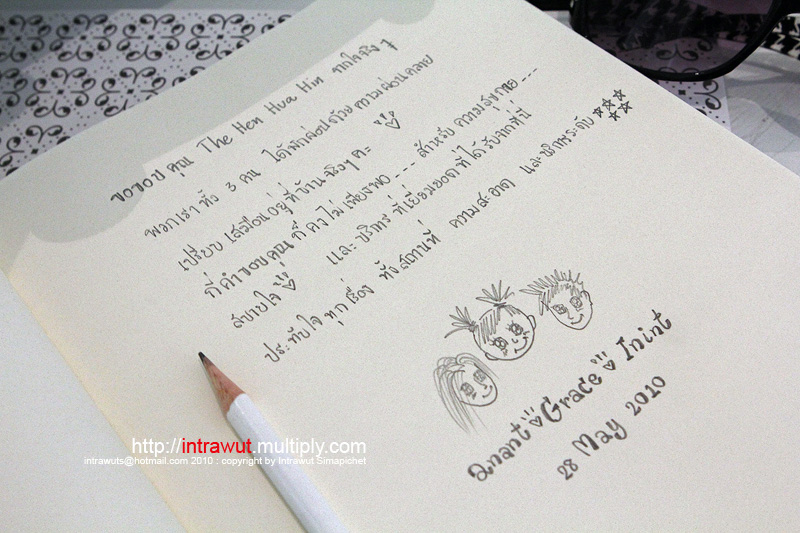 ขอขอบคุณ The Hen Hua Hin จากใจจริง ๆ
พวกเราทั้ง 3 คน ได้พักผ่อนด้วยความผ่อนคลาย
เปรียบเสมือนอยู่ที่บ้านจริงๆ ค่ะ
กี่คำขอบคุณ ก็คงไม่เพียงพอ --- สำหรับ ความสุขกาย ---
สบายใจ และ บริการ ที่เยี่ยมยอด ที่ได้รับจากที่นี่
ประทับใจ ทุกเรื่อง ทั้งสถานที่ ความสะอาด และบริการระดับ ☆☆☆☆☆
Anant Grace Inint
28 May 2010
http://intrawut.multiply.com
intrawuts@hotmail.com 2010 : copyright by Intrawut Simapichet